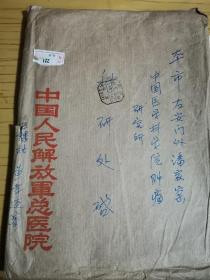 本市右安门外潘家窑
中国医学科学院肿瘤
研究所
科研处啟
中国人民解放軍总医院